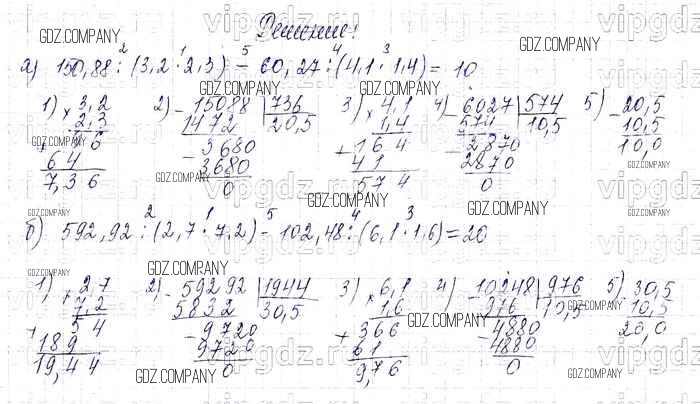 Решение:
а) 150,88 : (3,2 · 2,3) – 60,27 : (4,1 · 1,4) = 10
2 1 5 4 3
1) × 3,2
2,3
96
64
7,36
2) – 15088 | 736
1472 20,5
– 3680
3680
0
3) × 4,1
1,4
+ 164
41
574
4) – 6027 | 574
574 10,5
– 2870
2870
0
5) – 20,5
10,5
10,0
б) 592,92 : (2,7 · 7,2) – 102,48 : (6,1 · 1,6) = 20
2 1 5 4 3
1) × 2,7
7,2
+ 54
189
19,44
2) – 59292 | 1944
5832 30,5
– 9720
9720
0
3) × 6,1
1,6
+ 366
61
9,76
4) – 10248 | 976
976 10,5
– 4880
4880
0
5) 30,5
10,5
20,0
GDZ.COMPANY
GDZ.COMPANY
GDZ.COMPANY
GDZ.COMPANY
GDZ.COMPANY
GDZ.COMPANY
GDZ.COMPANY
GDZ.COMPANY
GDZ.COMPANY
GDZ.COMPANY
GDZ.COMPANY
GDZ.COMPANY
GDZ.COMPANY
GDZ.COMPANY
vipgdz.ru